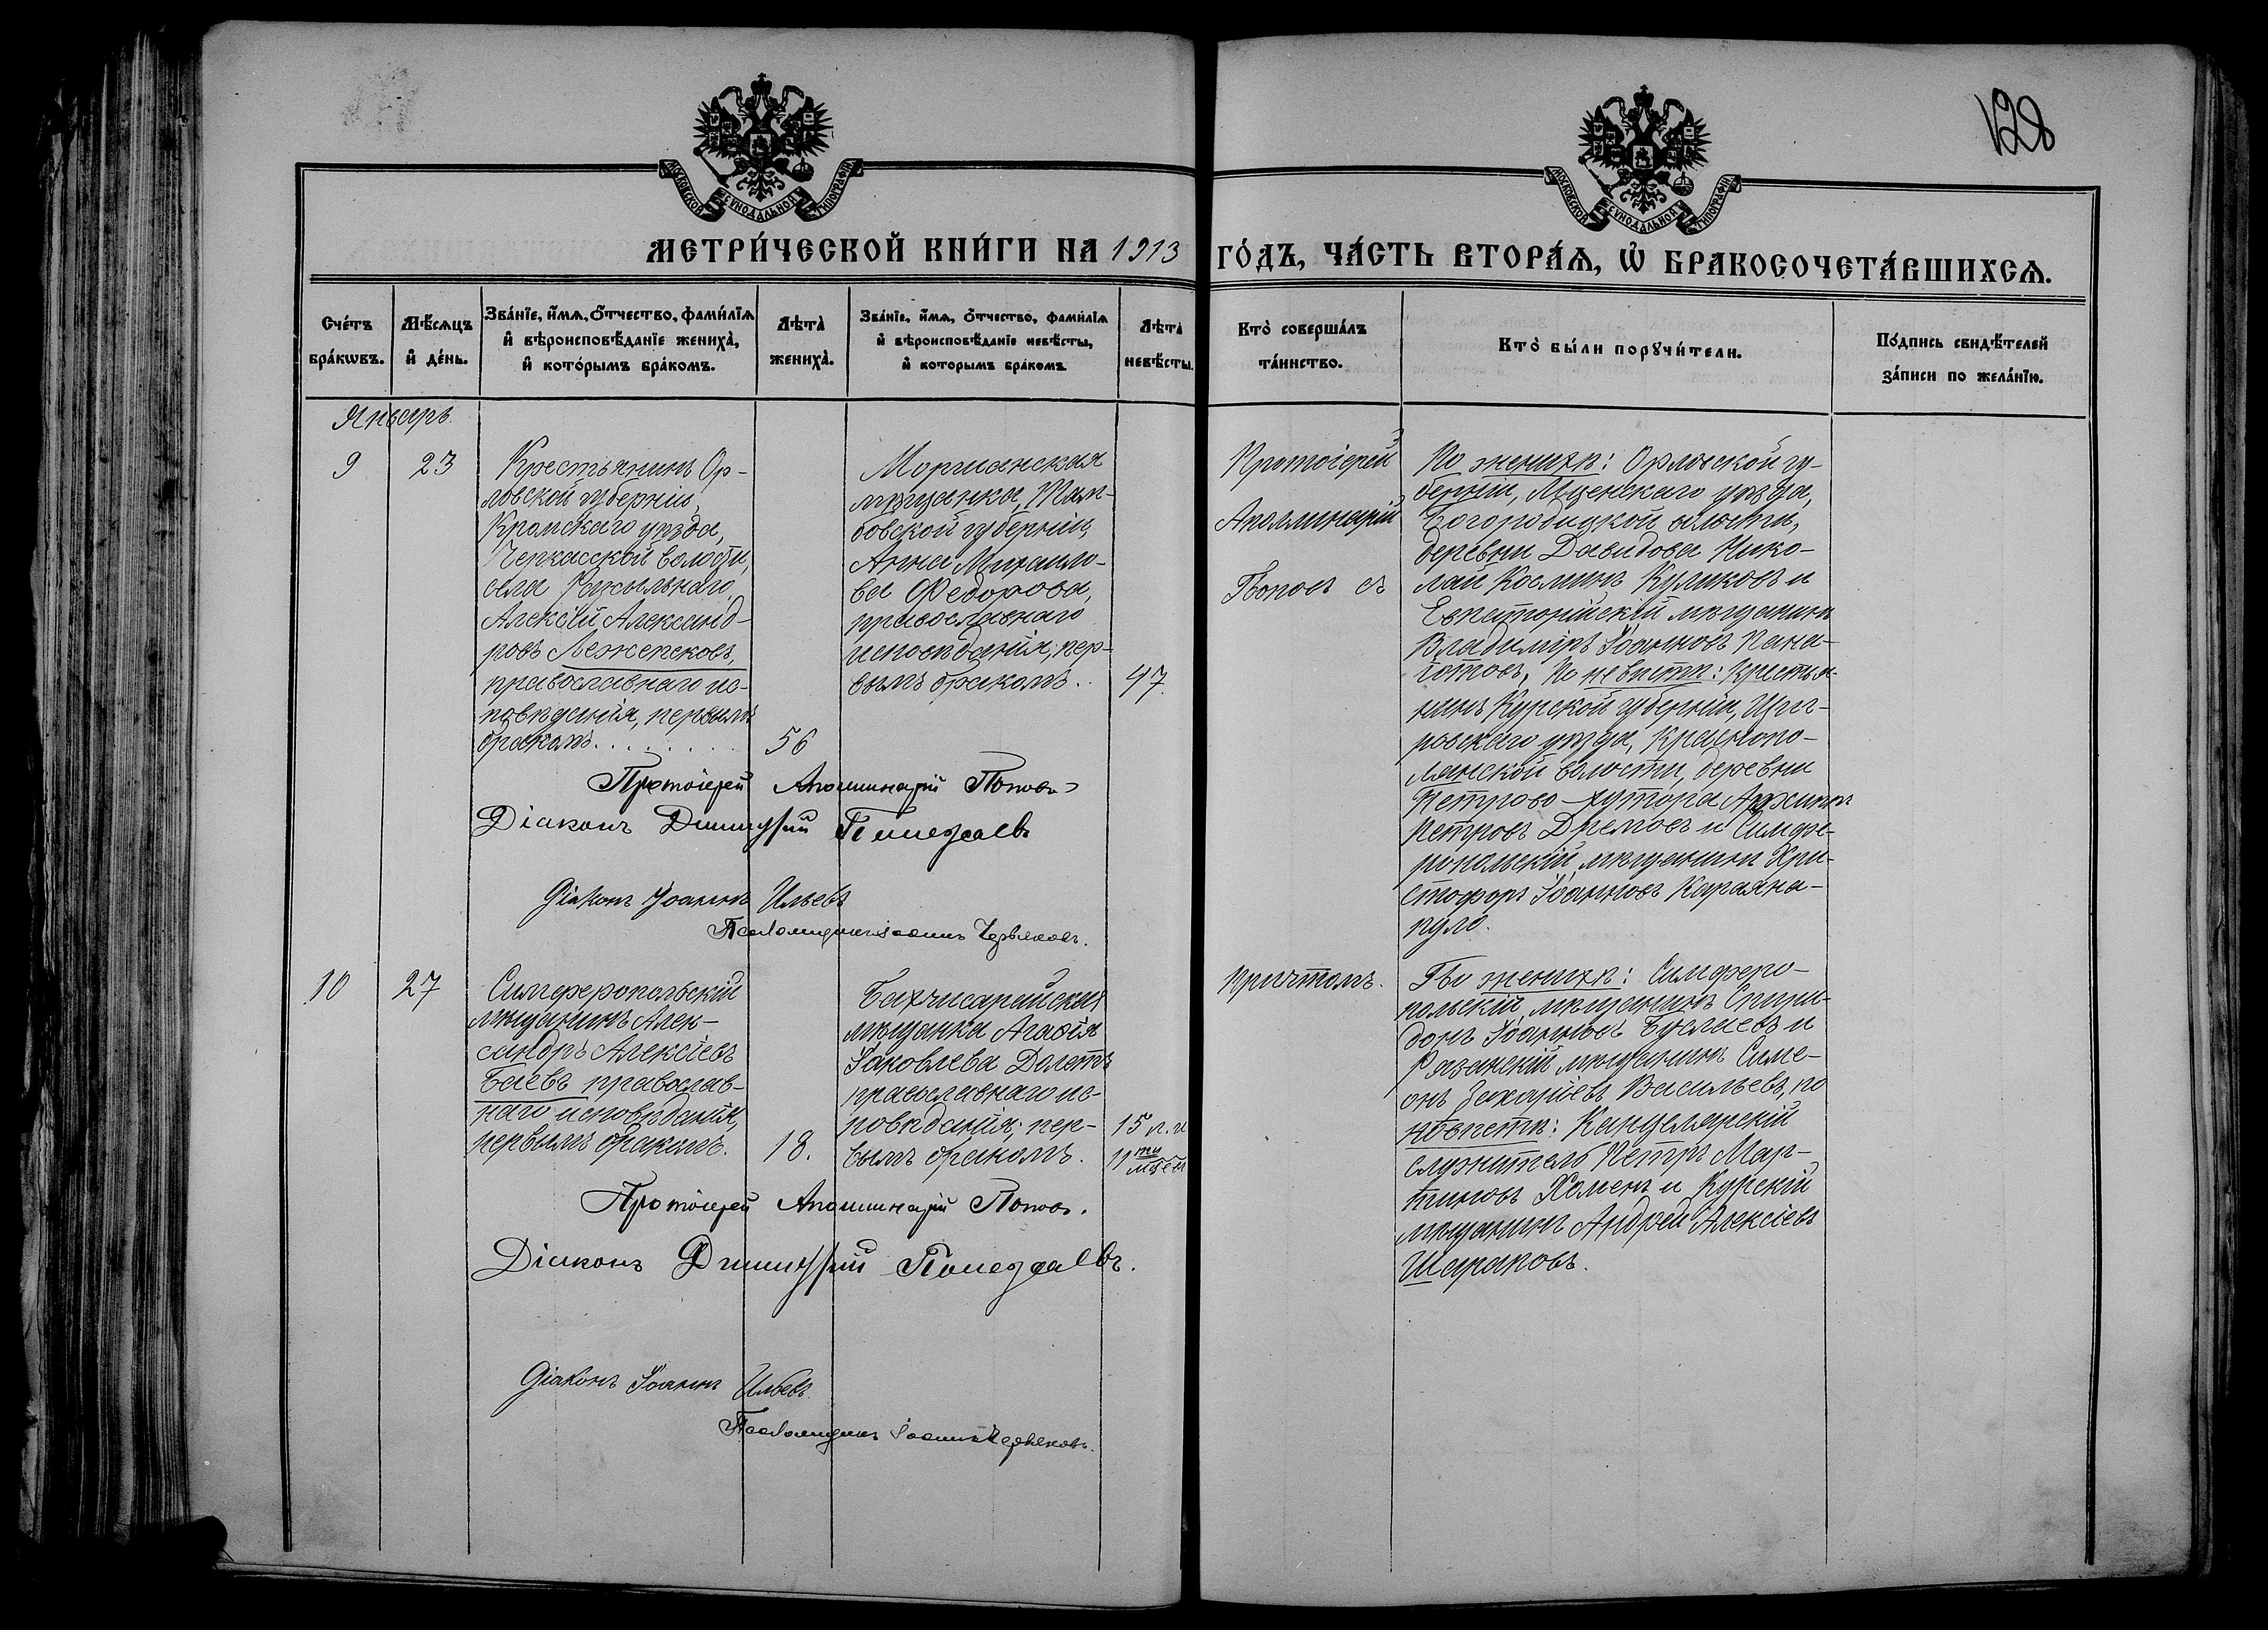 128
МОСКОВСКОЙ СУНОДАЛЬНОЙ ТИПОГРАФІИ
МОСКОВСКОЙ СУНОДАЛЬНОЙ ТИПОГРАФІИ
МЕТРИ́ЧЕСКОЙ КНИ́ГИ НА 1913 ГО́ДЪ, ЧА́СТЬ ВТОРА́Ѧ, Ѡ҆ БРАКОСОЧЕТА́ВШИХСѦ.
Счетъ
браковъ.
Мѣсяцъ
и день.
Званіе, имя, отчество, фамилія
и вѣроисповѣданіе жениха,
и которымъ бракомъ.
Лѣта
жениха.
Званіе, имя, отчество, фамилія
и вѣроисповѣданіе невѣсты,
и которымъ бракомъ.
Лѣта
невѣсты.
Кто совершалъ
таинство.
Кто были поручители.
Подпись свидѣтелей
записи по желанію.
Январь.
9
23
Крестьянинъ Ор-
ловской губерніи,
Кромскаго уѣзда,
Черкасской волости,
села
Алексій Александ-
ровъ Лежепековъ,
православнаго ис-
повѣданія, первымъ
бракомъ . . . . . . . .
56
Моршанская
мѣщанка, Там-
бовской губерніи,
Анна Михаило-
ва Федорова,
православнаго
исповѣданія, пер-
вымъ бракомъ . .
47.
Протоіерей
Аполлинарій
Поповъ съ
По женихѣ: Орловской гу-
берніи, Мценскаго уѣзда,
Богородицкой волости,
деревни Давыдова Нико-
лай Космин Куликовъ и
Евпаторійскій мѣщанинъ
Владиміръ Іоанновъ Пана-
готовъ, По невѣстѣ: крестья-
нинъ Курской губерніи, Щиг-
ровскаго уѣзда, Краснопо-
лянской волости, деревни
Петрово-хутора
Петровъ Дремовъ и Симфе-
ропольскій мѣщанинъ Хри-
стофоръ Іоанновъ Караяна-
пуло.
Протоіерей Аполлинарій Поповъ
Діаконъ Димитрій
Діаконъ Іоаннъ Ильевъ
Псаломщикъ Іоаннъ Червяковъ.
10
27
Симферопольскій
мѣщанинъ Алек-
сандръ Алексіевъ
Баевъ православ-
наго исповѣданія,
первымъ бракомъ.
18.
Бахчисарайская
мѣщанка Агафія
Іаковлева Долетъ
православнаго ис-
повѣданія; пер-
вымъ бракомъ.
15 л. и
11ти
мѣс.
Причтомъ.
По женихѣ: Симферо-
польскій мѣщанинъ Спири-
донъ Іоанновъ Буслаевъ и
Рязанскій мѣщанинъ Симе-
онъ Захаріевъ Васильевъ, по
невѣстѣ: Канцелярскій
служитель Петръ Мар-
тиновъ Хоменъ и Курскій
мѣщанинъ Андрей Алексіевъ
Шараковъ.
Протоіерей Аполлинарій Поповъ.
Діаконъ Димитрій
Діаконъ Іоаннъ Ильевъ.
Псаломщикъ Іоаннъ Червяковъ.